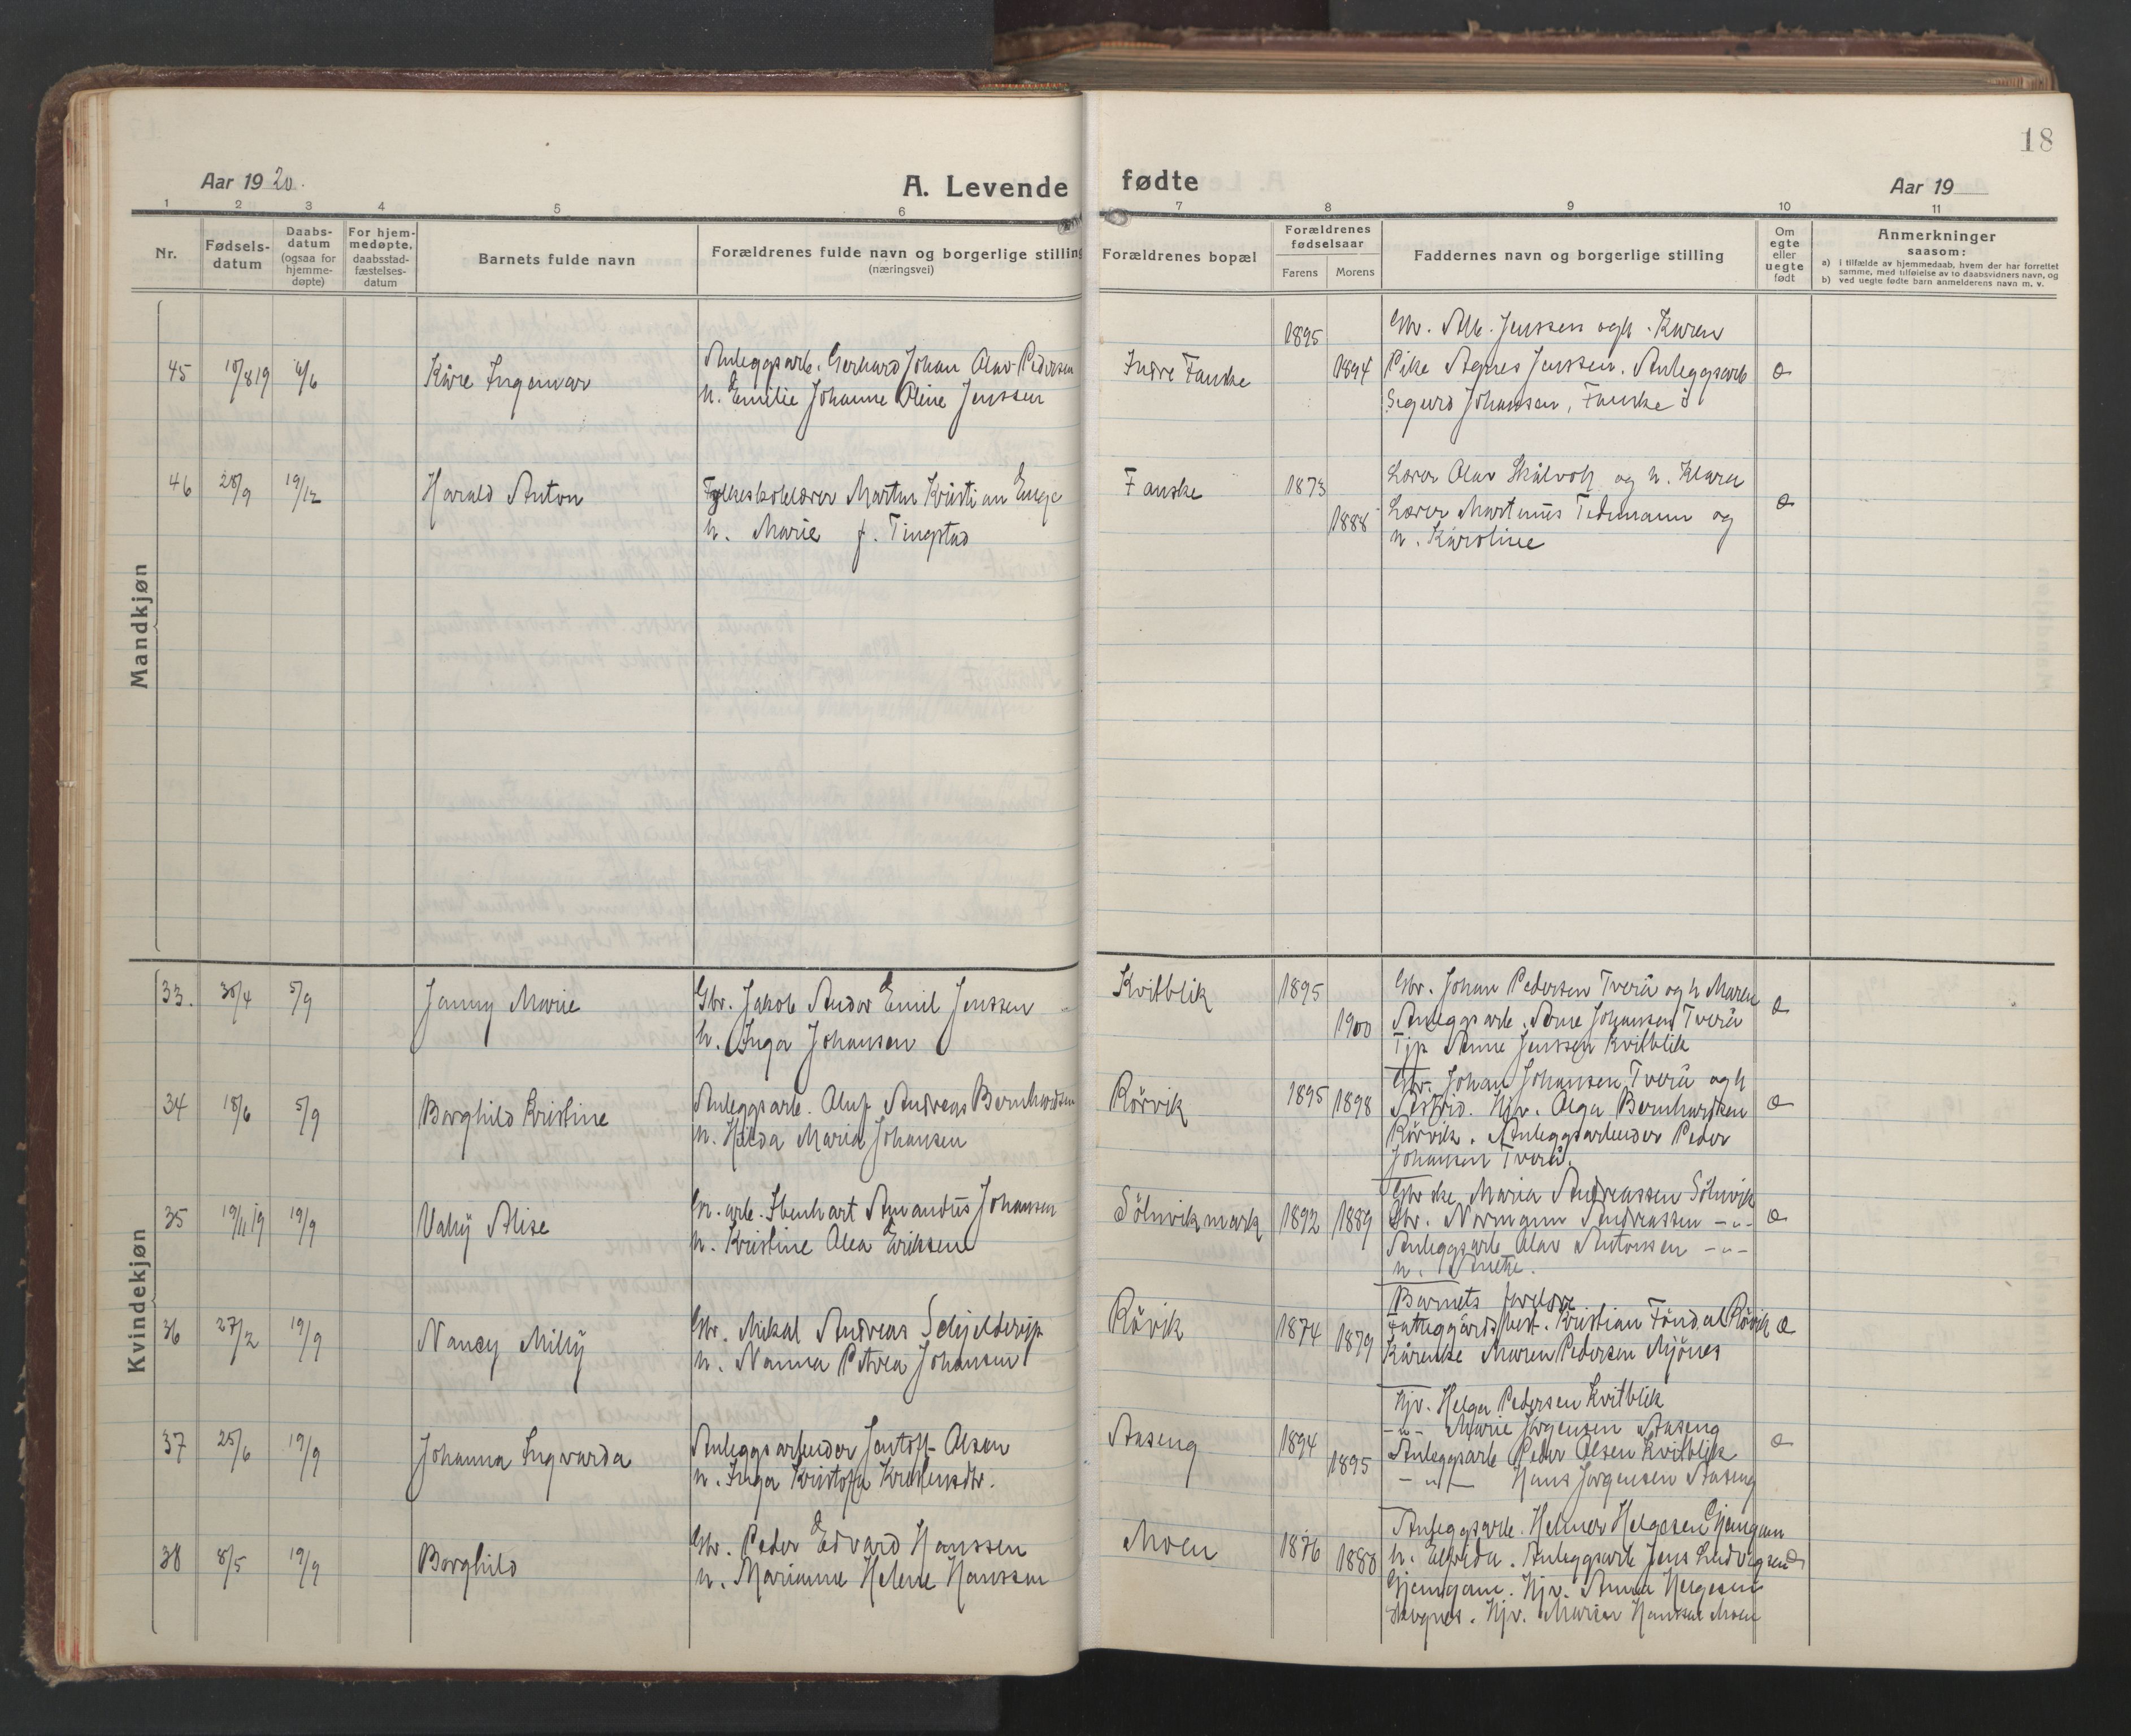 18
Aar 1920.
A. Levende fødte
Aar 19
1 2 3 4 5 6 7 8 9 10 11
Nr.
Fødsels-
datum
Daabs-
datum
(ogsaa for
hjemme-
døpte)
For hjem-
medøpte,
daabsstad-
fæstelses-
datum
Barnets fulde navn
Forældrenes fulde navn og borgerlige stilling
(næringsvei)
Forældrenes bopæl
Forældrenes
fødselsaar
Farens Morens
Faddernes navn og borgerlige stilling
Om
egte
eller
uegte
født
Anmerkninger
saasom:
a) i tilfælde av hjemmedaab, hvem der har forrettet
samme, med tilføielse av to daabsvidners navn, og
b) ved uegte fødte barn anmelderens navn m. v.
Mandkjøn
45 10/8 19 6/6 Kåre Ingemar
Anleggsarb. Gerhard Johan Olav Pedersen
h. Emilie Johanne Oline Jenssen
Indre Fauske 1895 1894
Gbr. Alb. Jenssen og h. Karen
Pike Agnes Jenssen. Anleggsarb
Sigurd Johansen, Fauske i
e
46 28/9 19/12 Harald Anton
Fylkesskolelærer Martin Kristian Enge
h. Marie f. Tingstad
Fauske 1873 1888
Lærer Olav Skålvoll og h. Klara
Lærer Martinus Tidemann og
h. Karoline
e
Kvindekjøn
33. 30/4 5/9 Janny Marie
Gbr. Jakob Andor Emil Jenssen
h. Inga Johansen
Kvitblik 1895 1900
Gbr. Johan Pedersen Tverå og h Maren
Anleggsarb. Arne Johansen Tverå
Tjp Anne Jenssen Kvitblik
e
34 18/6 5/9 Borghild Kristine
Anleggsarb. Oluf Andreas Bernhardsen
h. Hilda Maria Johansen
Rörvik 1895 1898
Gbr. Johan Johansen Tverå og h
Astrid. Hjv. Olga Bernhardsen
Rörvik. Anleggsarbeider Peder
Johansen Tverå.
e
35 19/11 19 19/9 Valhy Alise
An. arb. Ibenhart Amandus Johansen
h. Kristine Alea Eriksen
Sölnvikmark 1892 1889
Gbr ke Maria Andreassen Sölnvik
Gbr. Normann Andreassen - " -
Anleggsarb Olav Antonsen - " -
h. Anette.
e
36 27/2 19/9 Nancy Milly
Gbr. Mikal Andreas Schjelderup
h. Nanna Petrea Johansen
Rövik 1874 1879
Barnets foreldre
Fattiggårdsbest. Kristian Föndal Rövik
Kårenke Maren Pedersen Mjönes
e
37 25/6 19/9 Johanna Ingvarda
Anleggsarbeider Jentoft Olsen
h. Inga Kristoffa Kristensdtr.
Aaseng 1894 1895
Hjv. Helga Pedersen Kvitblik
- " - Marie Jörgensen Aaseng
Anleggsarb Peder Olsen Kvitblik
- " - Hans Jørgensen Aaseng
e
38 8/5 19/9 Borghild
Gbr. Peder Edvard Hanssen
h. Marianne Helene Hanssen
Moen 1876 1880
Anleggsarb. Helmer Helgesen Gjemgam
h. Elfrida. Anleggsarb Jens Ludvigsen
Gjemgam. Hjv. Anna Helgesen
Hjv. Marian Hanssen Moen
e